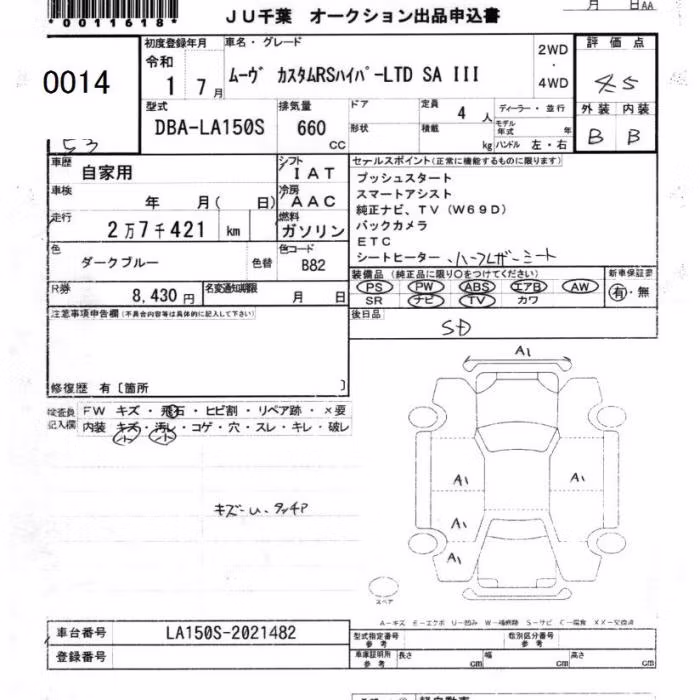 *0011618*
JU千葉 オークション出品申込書
月 日AA
0014
初度登録年月
令和
1 7月
車名・グレード
ムーヴ カスタムRSハイパーLTD SA III
2WD
・
4WD
評価点
4.5
型式
DBA-LA150S
排気量
660
CC
ドア
形状
定員
4 人
積載
kg
ディーラー・並行
モデル年式 年
ハンドル 左・右
外装 内装
B B
53
車歴
自家用
シフト
IAT
車検
年 月( 日)
冷房
AAC
走行
2万7千421 km
燃料
ガソリン
色
ダークブルー
色替
色コード
B82
R券
8,430 円
名変通知期限
月 日
セールスポイント(正常に機能するものに限ります)
プッシュスタート
スマートアシスト
純正ナビ、TV(W69D)
バックカメラ
ETC
シートヒーター ハーフレザーシート
装備品(純正品に限り○をつけてください)
PS PW ABS エアB AW
SR ナビ TV カワ
新車保証書
有・無
後日品
SD
注意事項申告欄(不具合内容等は具体的に記入して下さい)
修復歴 有〔箇所 〕
検査員記入欄
FW キズ・飛石・ヒビ割・リペア跡・×要
内装 キズ・汚レ・コゲ・穴・スレ・キレ・破レ
小 小
キズ-U、タッチP
A1
A1
A1
A1
A1
スペア
A-キズ E-エクボ U-凹み W-補修跡 S-サビ C-腐食 XX-交換済
車台番号
LA150S-2021482
登録番号
型式指定番号
参考
類別区分番号
参考
車庫証明所
参考
長さ cm
幅 cm
高さ cm